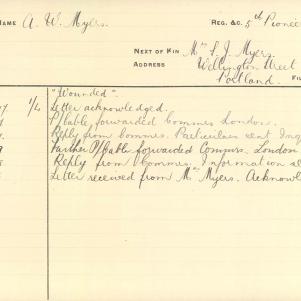 NAME A. W. Myers. REG. &C. 5th Pioneer
NEXT OF KIN Mrs L. J. Myers.
ADDRESS Wellington Street
Portland.
"Wounded".
1/4 Letter acknowledged.
P/Cable forwarded Commrs London.
Reply from Commrs. Particulars sent
Further P/Cable forwarded Commrs. London
Reply from Commrs. Information
Letter received from Mrs Myers. Acknowl